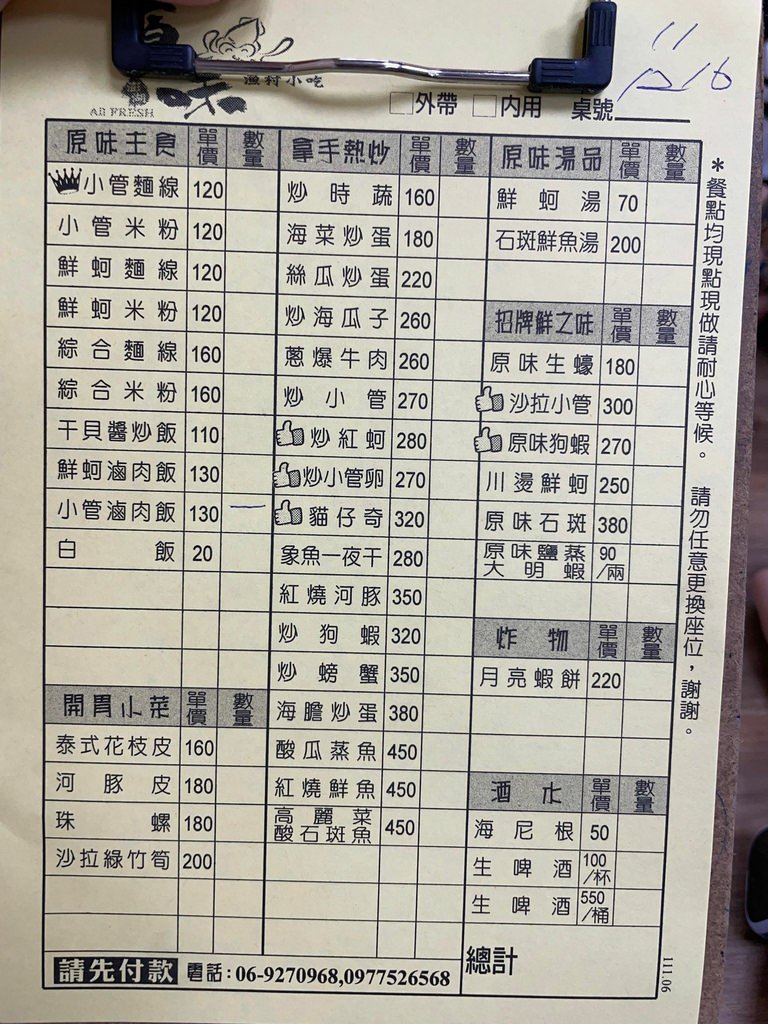 味
漁村小吃
All FRESH
外帶 內用 桌號
原味主食 單價 數量
小管麵線 120
小管米粉 120
鮮蚵麵線 120
鮮蚵米粉 120
綜合麵線 160
綜合米粉 160
干貝醬炒飯 110
鮮蚵滷肉飯 130
小管滷肉飯 130 一
白飯 20
開胃小菜 單價 數量
泰式花枝皮 160
河豚皮 180
珠螺 180
沙拉綠竹筍 200
拿手熱炒 單價 數量
炒時蔬 160
海菜炒蛋 180
絲瓜炒蛋 220
炒海瓜子 260
蔥爆牛肉 260
炒小管 270
炒紅蚵 280
炒小管卵 270
貓仔奇 320
象魚一夜干 280
紅燒河豚 350
炒狗蝦 320
炒螃蟹 350
海膽炒蛋 380
酸瓜蒸魚 450
紅燒鮮魚 450
高麗菜酸石斑魚 450
原味湯品 單價 數量
鮮蚵湯 70
石斑鮮魚湯 200
招牌鮮之味 單價 數量
原味生蠔 180
沙拉小管 300
原味狗蝦 270
川燙鮮蚵 250
原味石斑 380
原味鹽蒸大明蝦 90/兩
炸物 單價 數量
月亮蝦餅 220
酒水 單價 數量
海尼根 50
生啤酒 100/杯
生啤酒 550/桶
總計
請先付款 電話：06-9270968,0977526568
111.06
＊餐點均現點現做請耐心等候。 請勿任意更換座位，謝謝。